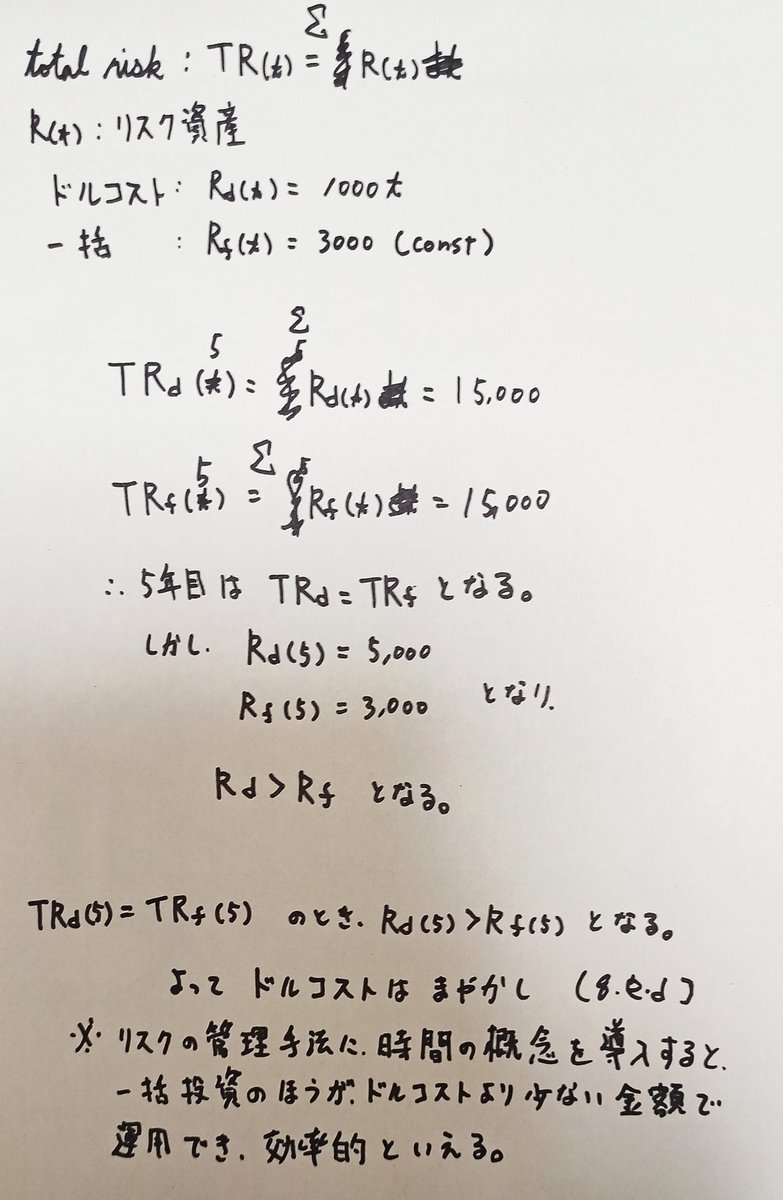 total risk : TR(t) = Σ R(t)
R(t) : リスク資産
ドルコスト : Rd(t) = 1000t
一括 : Rf(t) = 3000 (const)
TRd(5) = Σ Rd(t) = 15,000
TRf(5) = Σ Rf(t) = 15,000
∴ 5年目は TRd = TRf となる。
しかし、 Rd(5) = 5,000
Rf(5) = 3,000 となり、
Rd > Rf となる。
TRd(5) = TRf(5) のとき、Rd(5) > Rf(5) となる。
よって ドルコストは まやかし (q.e.d)
※ リスクの管理手法に、時間の概念を導入すると、
一括投資のほうが、ドルコストより少ない金額で
運用でき、効率的といえる。